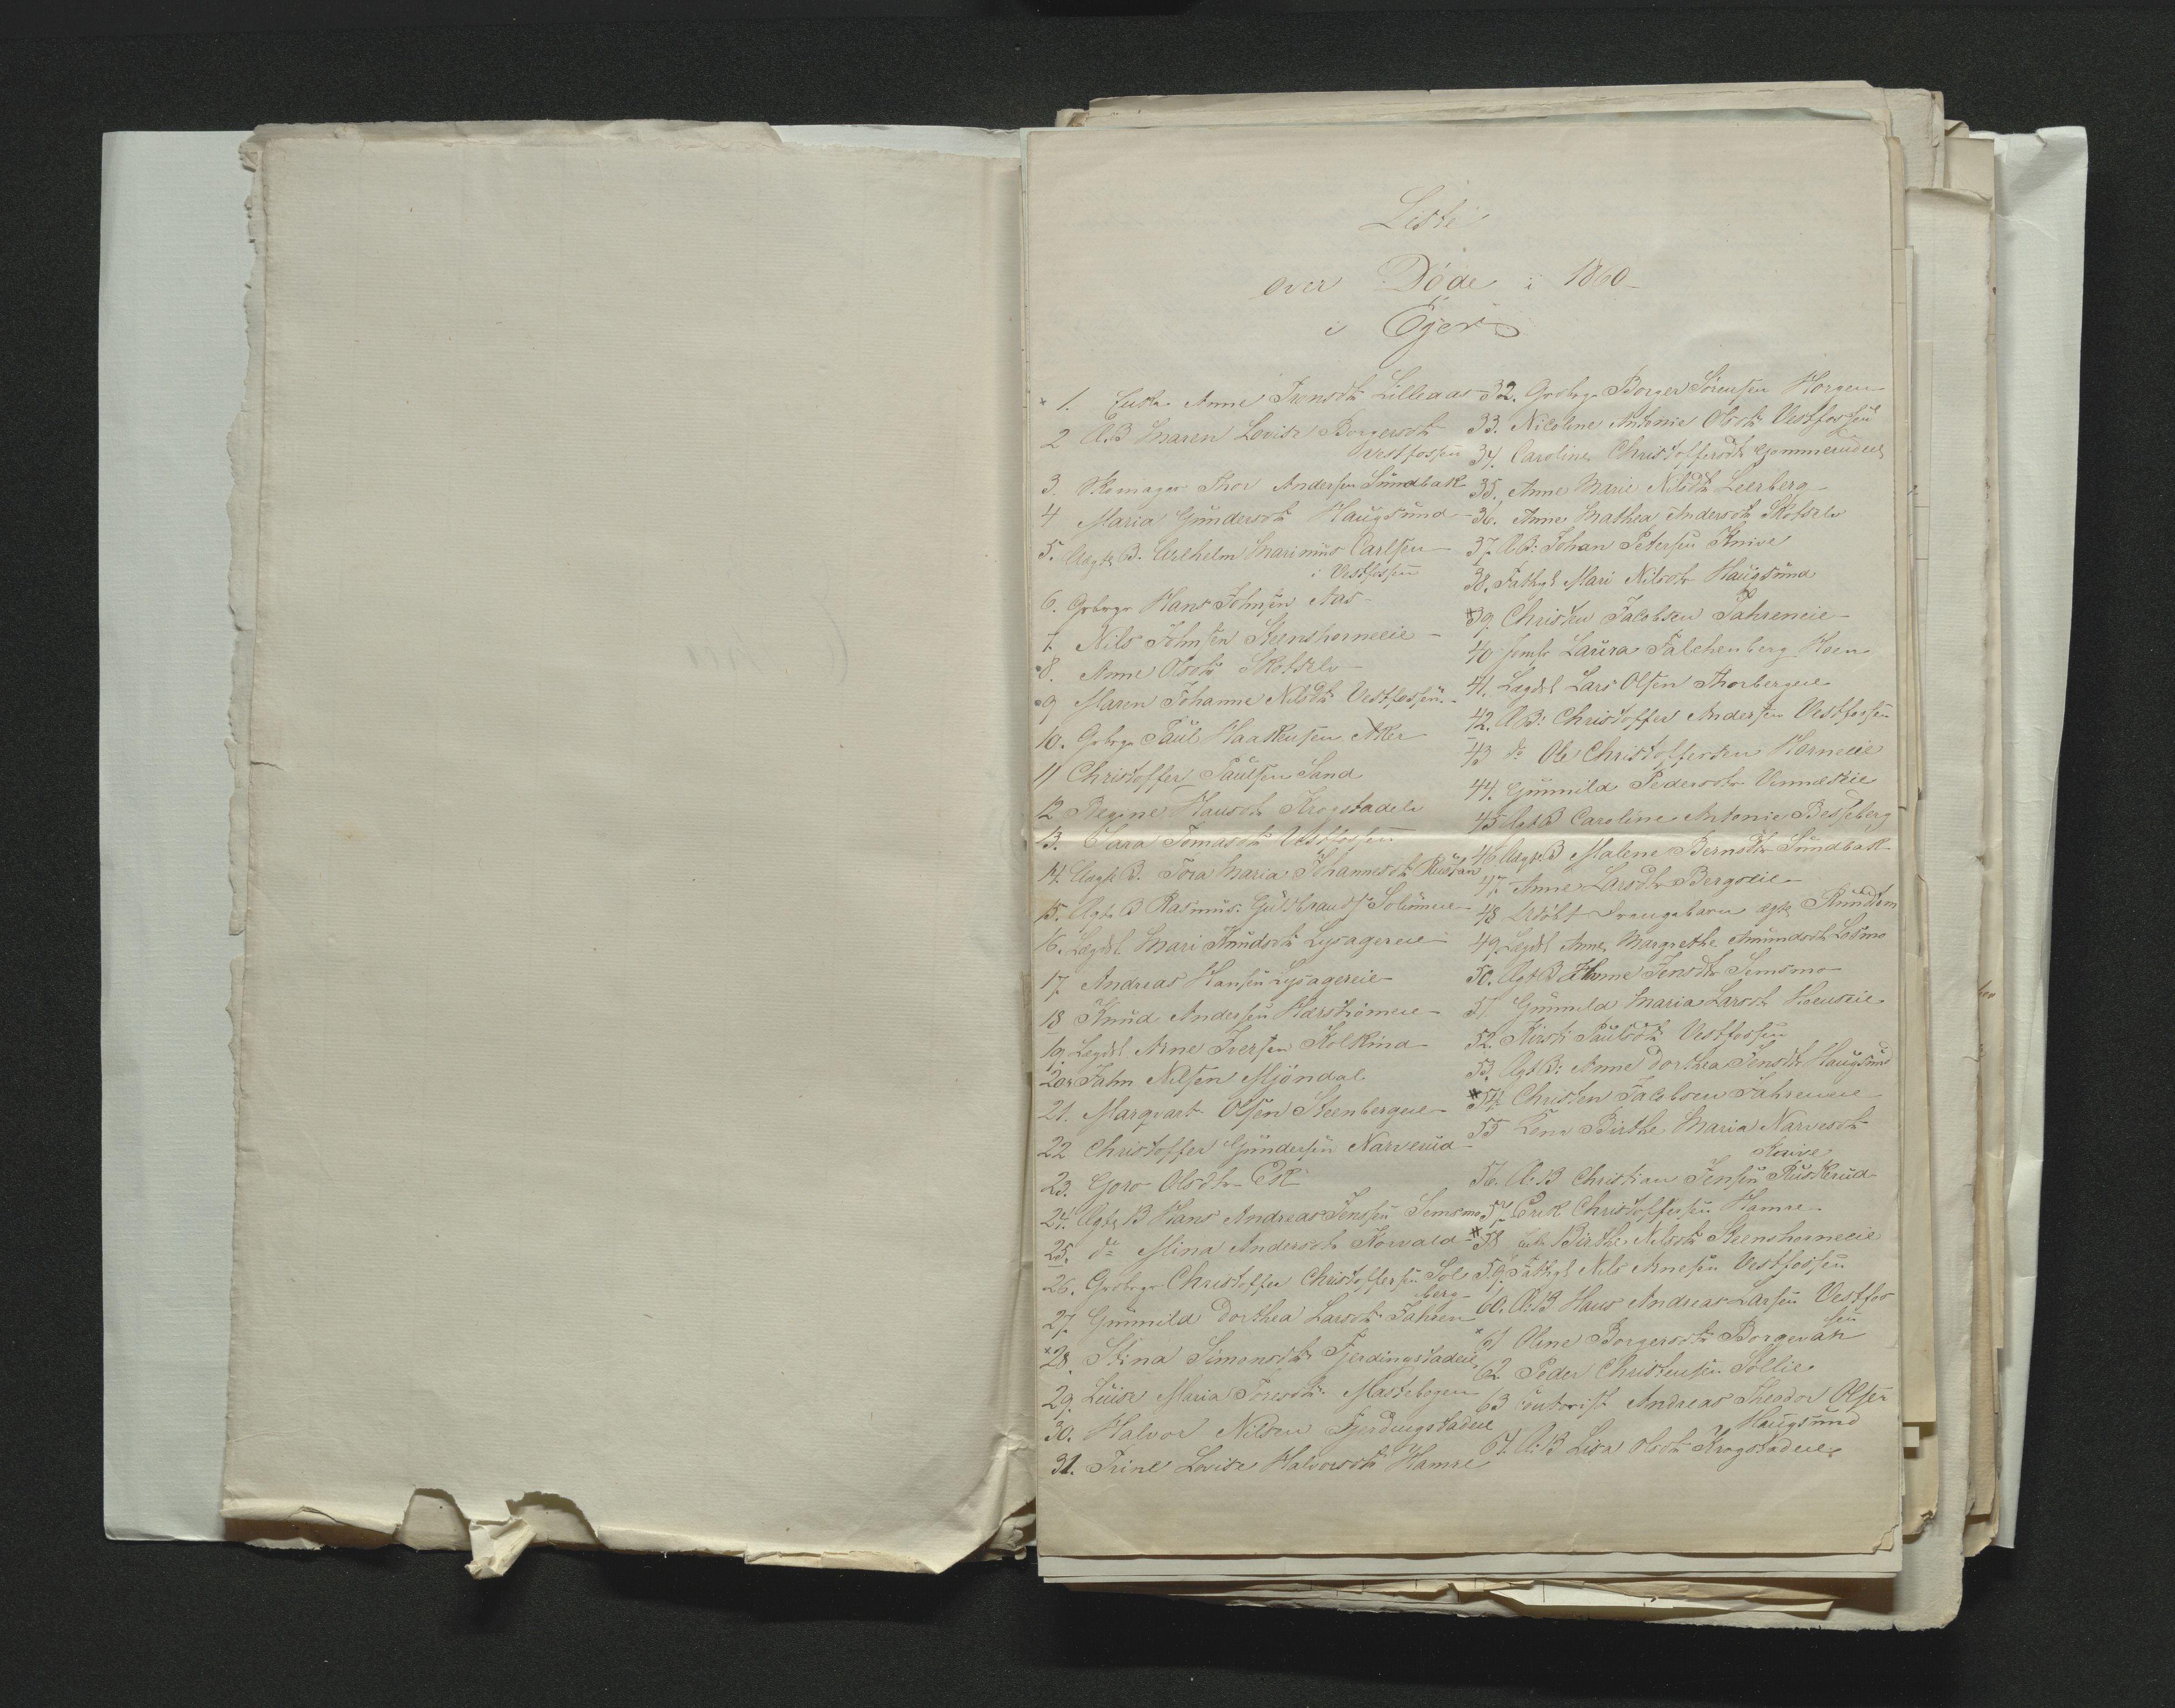 Liste
over Døde i 1860
i Eger
× 1. Enke Anne Tronsdt Lilleaas
2 A.B Maren Lovise Borgersdt
Vestfossen
3. Skomager Thor Andersen Sundbak
4 Maria Gundersdt Haugsund
5. Ægte B. Vilhelm Marinius Carlsen
i Vestfossen
6. Grbrgr Hans Johnsen Aas
7. Nils Johnsen Steenshorneeie
8. Anne Olsdt Skotselv
9 Maren Johanne Nilsdt Vestfossen
10. Grbrgr Paul Haakensen Aker
11 Christoffer Paulsen Sand
12 Regine Hansdt Krogstadelv
13. Clara Tomasdt Vestfossen
14. Ægte B. Tora Maria Johannesdt Rustan
15. Ægte B Rasmus Guldbrands
16. Lægdsl Mari Knudsdt Lysagereie
17. Andreas Hansen Lysagereie
18 Knud Andersen
19. Lægdsl Arne Iversen Kolkind
20. Jahn Nilsen Mjöndal
21. Marqvart Olsen Steenbergeie
22 Christoffer Gundersen Narverud
23. Goro Olsdtr Ek
24. Ægte B Hans Andreas Jenssen Semsmo
25. do Mina Andersdt Korvald
26. Grbrgr Christoffer Christoffersen Sol
berg
27. Gunnild Dorthea Larsdt Fahren
× 28 Stina Simonsdt Fjerdingstadeie
29. Luise Maria Toresdt Mastebogen
30. Halvor Nilsen Fjerdingstadeie
31. Trine Lovise Halvorsdt Hamre
32. Grdbrgr Borger Sörensen Horgen
33. Nicoline Antonie Olsdt Vestfossen
34. Caroline Christoffersdt
35. Anne Marie Nilsdt Leerberg
36. Anne Mathea Andersdt Skotselv
37. A.B: Johan Petersen Knive
38. Fattigl Mari Nilsdt Haugsund
× 39. Christen Jacobsen Fahreneie
40 Jomfr Laura Falchenberg Hoen
41. Lægdsl Lars Olsen Thorbergeie
42. A.B: Christoffer Andersen Vestfossen
43 do Ole Christoffersen Horneeie
44. Gunnild Pedersdtr
45 Ægt B Caroline Antonie Besseberg
46. Ægte B Malene Berntdtr Sundbak
47. Anne Larsdtr Bergseie
48 Udöbt Drengebarn ægte
49. Lægdsl Anne Margrethe Amundsdt Losmo
50. Ægt B Anne Jensdtr Semsmo
51. Gunnild Maria Larsdt Hoenseie
52. Kirsti Paulsdt Vestfossen
53. Ægt B: Anne Dorthea Jensdt Haugsund
× 54. Christen Jacobsen Fahreneie
55 Lena Birthe Maria Narvesdt
Knive
56. A.B Christian Jensen Ruskerud
57. Erik Christoffersen Hamre
× 58 Enke Birthe Nilsdt Steenshorneeie
59. Fattigl Nils Arnesen Vestfossen
60. A.B Hans Andreas Larsen Vestfos
sen
× 61 Oline Borgersdt
62 Peder Christensen Sollie
63 Contorist Andreas Theodor Olsen
Haugsund
64. A.B Lisa Olsdt Krogstadelv